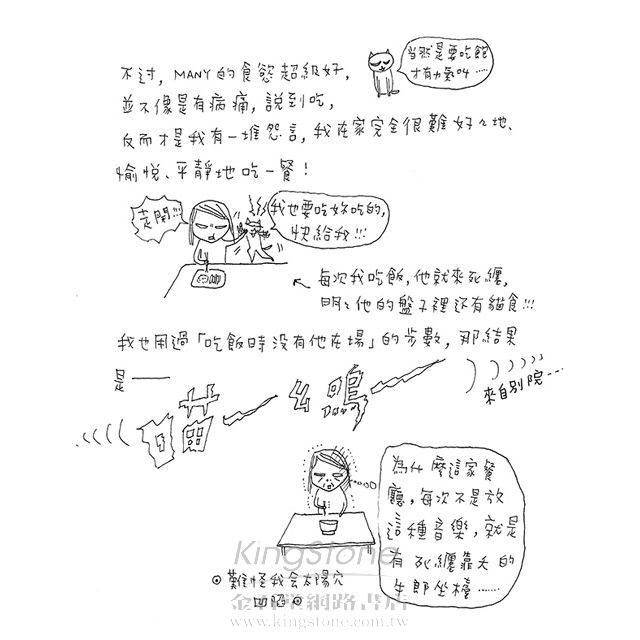 不过, MANY的食慾超級好,
當然是要吃飽
才有力氣叫……
並不像是有病痛, 說到吃,
反而才是我有一堆怨言, 我在家完全很難好々地、
愉悅、平靜地吃一餐!
走開!!!
我也要吃妳吃的,
快給我!!!
← 每次我吃飯, 他就來死纏,
明々他的盤子裡還有貓食!!!
我也用過「吃飯時沒有他在場」的步數, 那結果
是——
喵~ 幺嗚~
來自別院…
為什麼這家餐
廳, 每次不是放
這種音樂, 就是
有死纏靠夭的
牛郎坐檯……
⊙難怪我会太陽穴
凹陷⊙
KingStone
金石堂網路書店
www.kingstone.com.tw